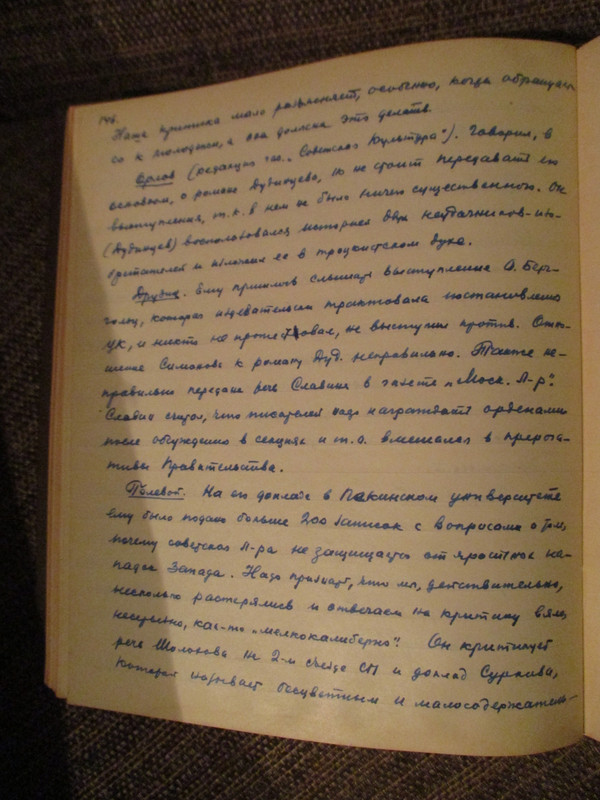 146.
Наша критика мало разъясняет, особенно, когда обращает-
ся к молодежи, а она должна это делать.
Орлов (редакция газ. „Советская Культура"). Говорил, в
основном, о романе Дудинцева, но не стоит передавать его
выступления, т.к. в нем не было ничего существенного. Он
(Дудинцев) воспользовался историей двух неудачников-изо-
бретателей и изложил ее в троцкистском духе.
Друзин. Ему пришлось слышать выступление О. Берг-
гольц, которая издевательски трактовала постановления
ЦК, и никто не протестовал, не выступил против. Отно-
шение Симонова к роману Дуд. неправильно. Также не-
правильно передана речь Славина в газете „Моск. Л-р".
Славин считал, что писателей надо награждать орденами
после обсуждения в секциях и т.о. вмешался в прерога-
тивы Правительства.
Полевой. На его докладе в Пекинском университете
ему было подано больше 200 записок с вопросами о том,
почему советская Л-ра не защищается от яростных на-
падок Запада. Надо признать, что мы, действительно,
несколько растерялись и отвечаем на критику вяло,
неспешно, как-то „мелкокалиберно". Он критикует
речь Шолохова на 2-м съезде СП и доклад Суркова,
который называет бесцветным и малосодержатель-